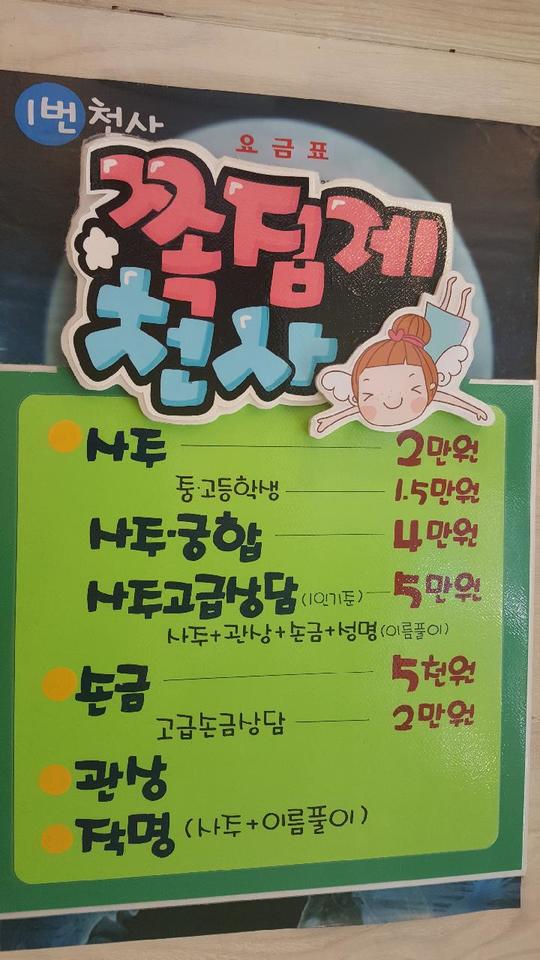 1번 천사
요금표
쪽집게
천사
사주 2만원
중·고등학생 1.5만원
사주·궁합 4만원
사주고급상담(1인기준) 5만원
사주+관상+손금+성명(이름풀이)
손금 5천원
고급손금상담 2만원
관상
작명 (사주+이름풀이)